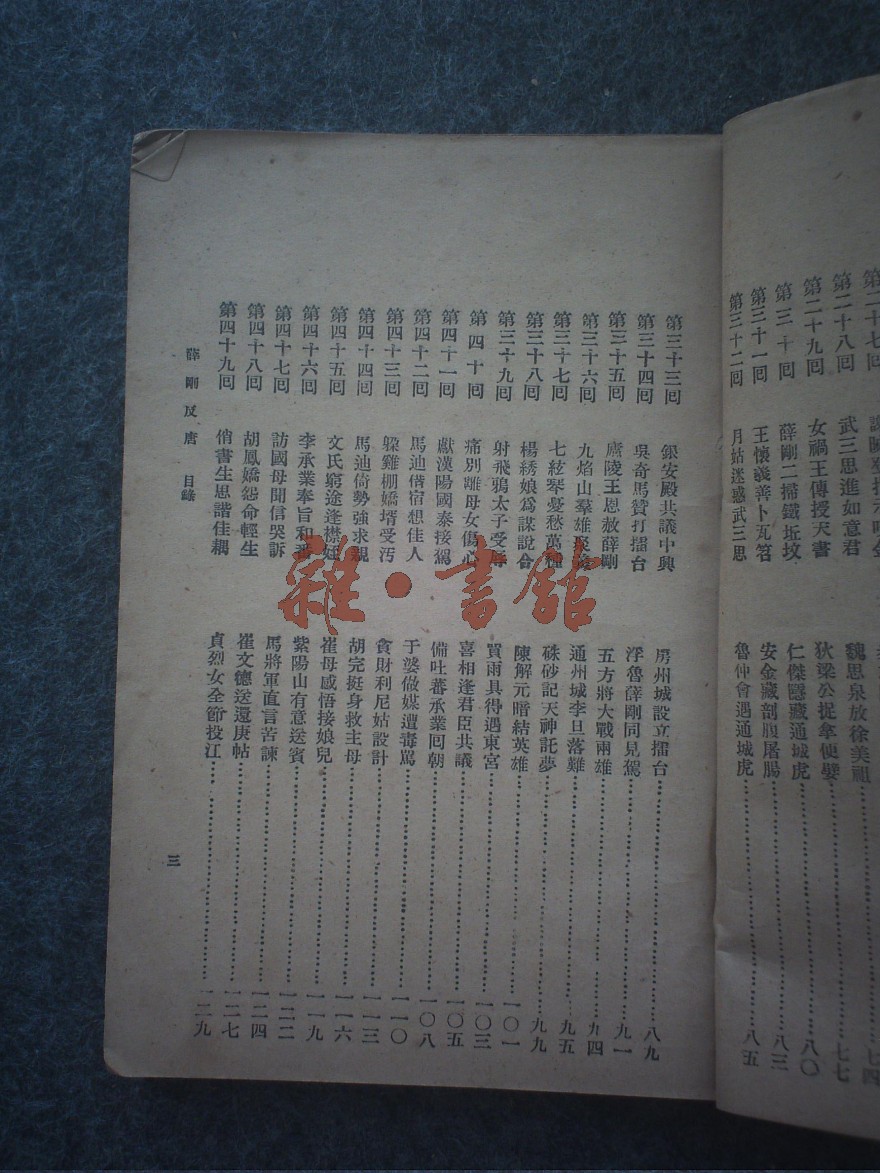 第二十七回 七四
第二十八回 武三思進如意君 魏思泉放徐美祖 七七
第二十九回 女禍王傳授天書 狄梁公捉拿便嬖 八〇
第三十回 薛剛二掃鐵坵墳 仁傑隱藏通城虎 八三
第三十一回 王懷義善卜瓦笤 安金藏剖腹屠腸
第三十二回 月姑迷惑武三思 魯仲會遇通城虎 八五
第三十三回 銀安殿共議中興 房州城設立擂台 八九
第三十四回 吳奇馬贊打擂台 浮魯薛剛同見駕 九一
第三十五回 廬陵王恩赦薛剛 五方將大戰兩雄 九四
第三十六回 九焰山羣雄聚義 通州城李旦落難 九五
第三十七回 七絃琴憂愁萬種 硃砂記天神託夢 九九
第三十八回 楊綉娘爲謀說合 陳解元暗結英雄 一〇一
第三十九回 射飛鴉太子受辱 買雨具得遇東宮 一〇三
第四十回 痛別離母女傷心 喜相逢君臣共議 一〇五
第四十一回 獻漢陽國泰接駕 備吐蕃承業囘朝 一〇八
第四十二回 馬迪借宿想佳人 于婆做媒遭毒罵 一一〇
第四十三回 躱雞棚嬌壻受汚 貪財利尼姑設計 一一三
第四十四回 馬迪倚勢強求親 胡完挺身救主母 一一六
第四十五回 文氏窮途逢襟姪 崔母感悟接娘兒 一一九
第四十六回 李承業奉旨和番 紫陽山有意送賓 一二二
第四十七回 訪國母聞信哭訴 馬將軍直言苦諫 一二四
第四十八回 胡鳳嬌怨命輕生 崔文德送還庚帖 一二七
第四十九回 俏書生思諧佳耦 貞烈女全節投江 一二九
薛剛反唐 目錄 三
雜·書館